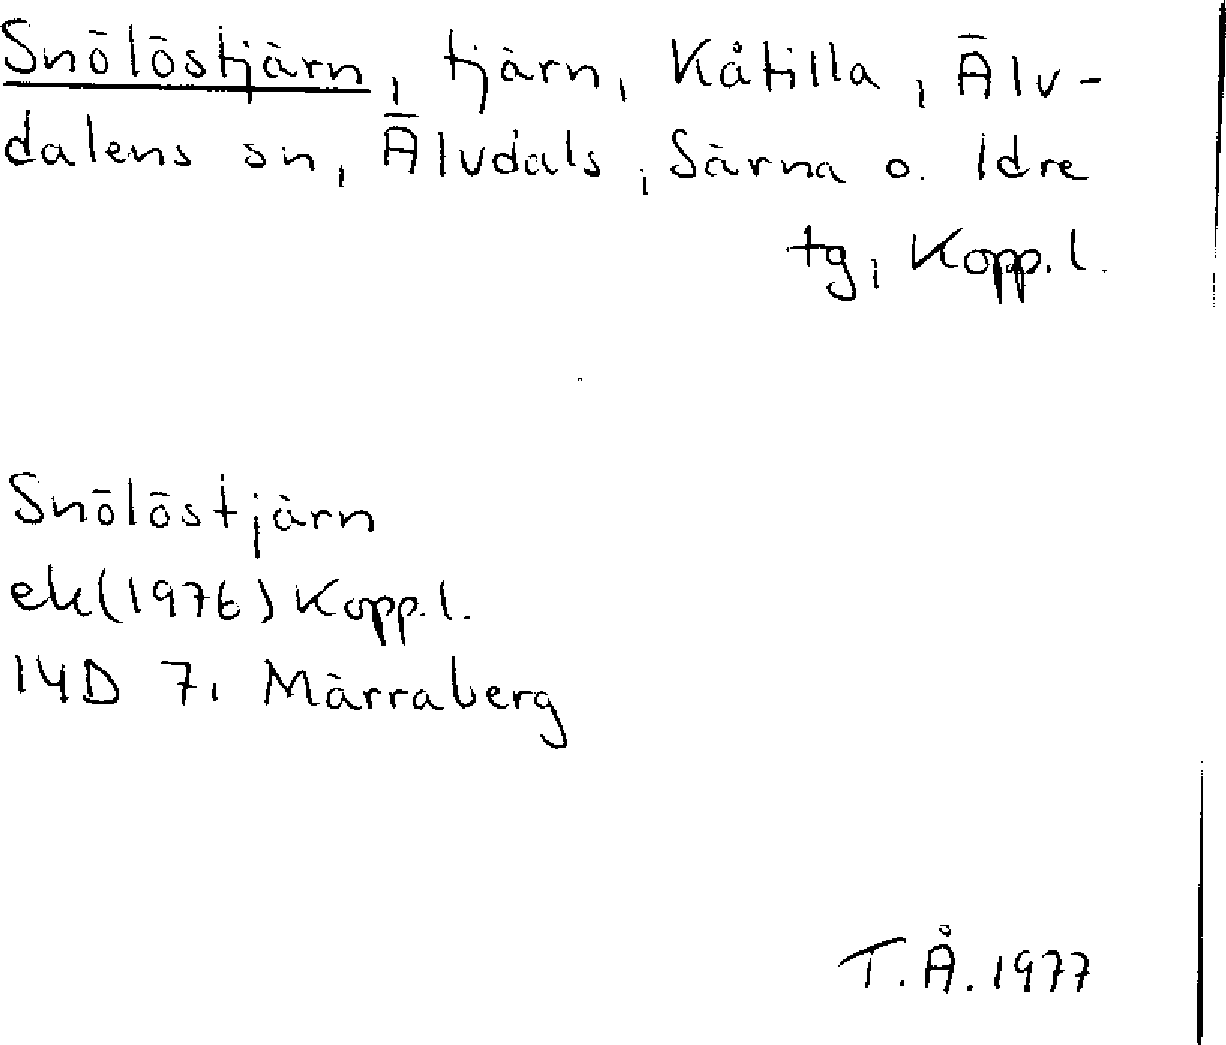 Snölöstjärn, tjärn, Kåtilla, Älv-
dalens sn, Älvdals, Särna o. Idre
tg, Kopp. l.
Snölöstjärn
ek(1976) Kopp. l.
14D 7i Märraberg
T. Å. 1977